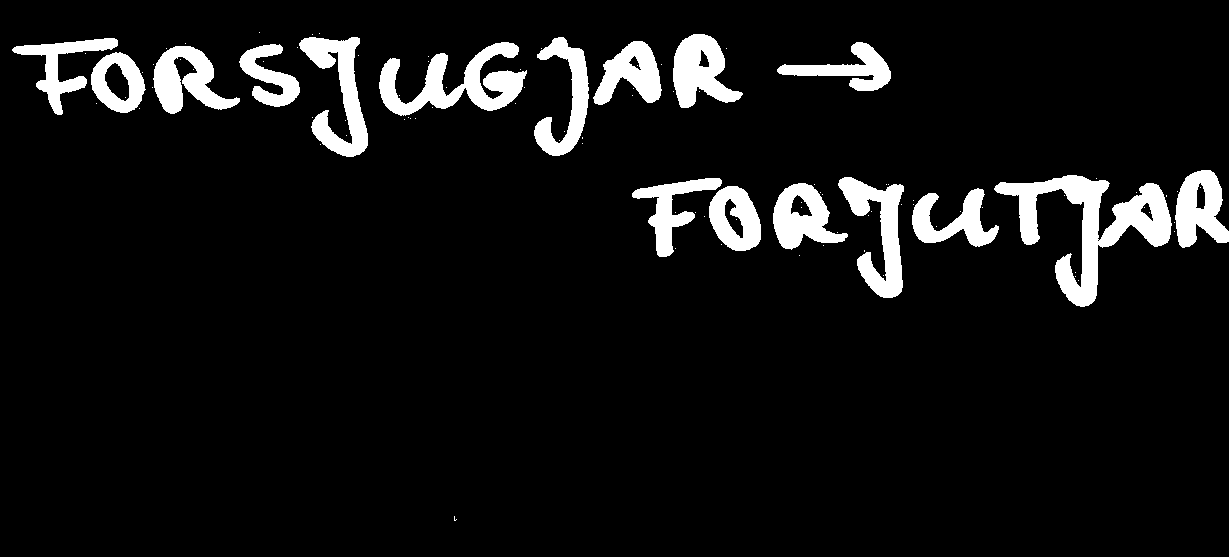 FORSJUGJAR →
FORJUTJAR